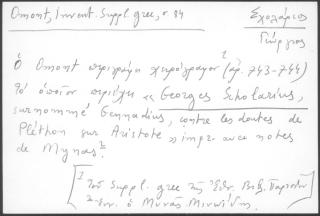 Omont, Invent. Suppl. grec, σ. 84
Σχολάριος
Γεώργιος
Ὁ Omont περιγράφει χειρόγραφον¹ (ἀρ. 743-744)
τὸ ὁποῖον περιέχει « Georges Scholarius,
surnommé Gennadius, contre les doutes de
Pléthon sur Aristote » impr. avec notes
de Mynas.²
1 τοῦ Suppl. grec τῆς Ἐθν. Βιβ. Παρισίων
2 ἐν. ὁ Μυνᾶς Μινωΐδης.